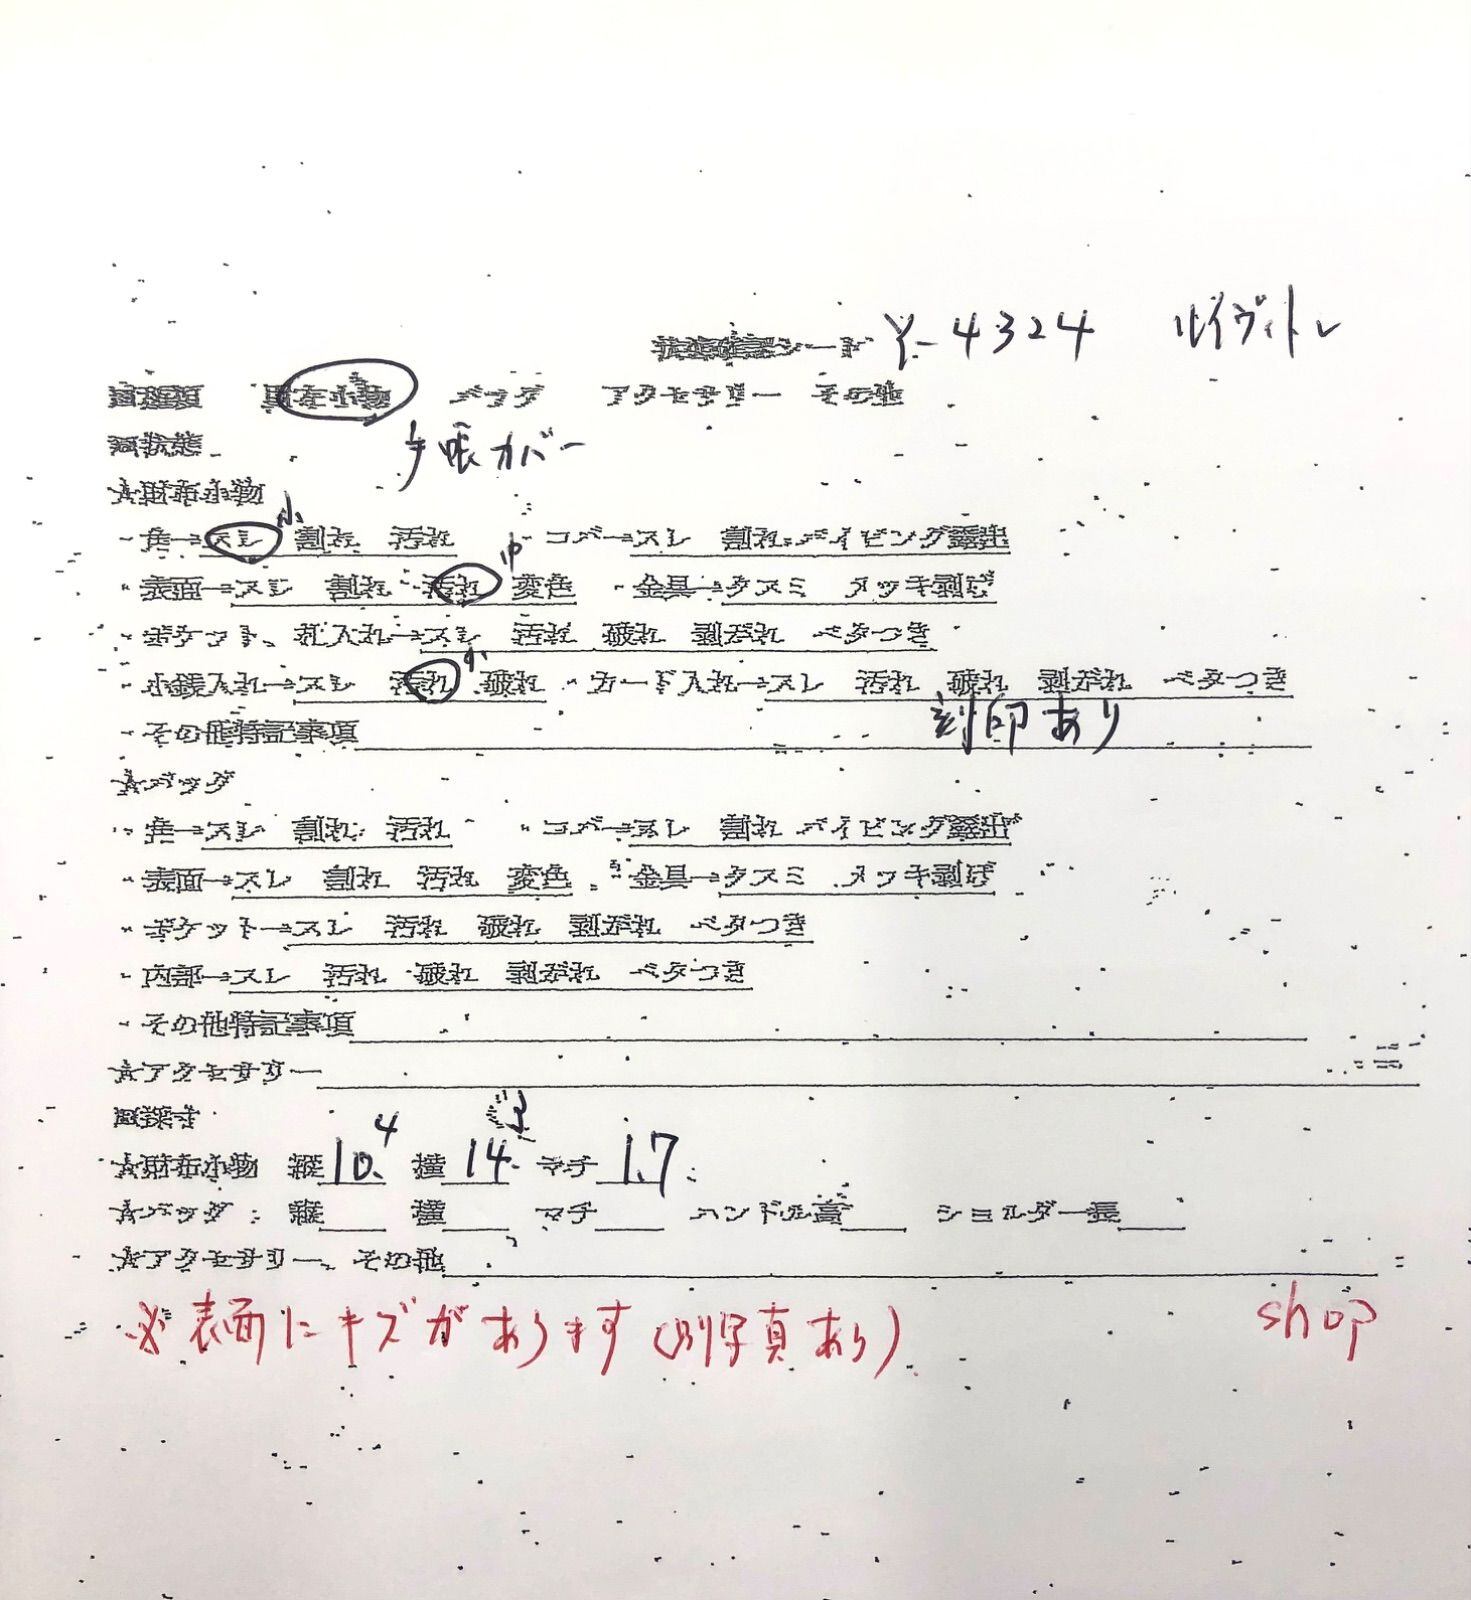 状態確認シート Y-4324 ルイヴィトン
財布小物 バッグ アクセサリー その他
状態 手帳カバー
☆財布小物
・角→スレ 小 割れ 汚れ ・コバ→スレ 割れ パイピング露出
・表面→スレ 割れ 汚れ 中 変色 ・金具→クスミ メッキ剥げ
・ポケット、札入れ→スレ 汚れ 破れ 剥がれ ベタつき
・小銭入れ→スレ 汚れ 小 破れ ・カード入れ→スレ 汚れ 破れ 剥がれ ベタつき
・その他特記事項 刻印あり
☆バッグ
・角→スレ 割れ 汚れ ・コバ→スレ 割れ パイピング露出
・表面→スレ 割れ 汚れ 変色 ・金具→クスミ メッキ剥げ
・ポケット→スレ 汚れ 破れ 剥がれ ベタつき
・内部→スレ 汚れ 破れ 剥がれ ベタつき
・その他特記事項
☆アクセサリー
採寸
☆財布小物 縦10.4 横14.3 マチ1.7
☆バッグ 縦 横 マチ ハンドル高 ショルダー長
☆アクセサリー、その他
※表面にキズがあります(別写真あり) shop